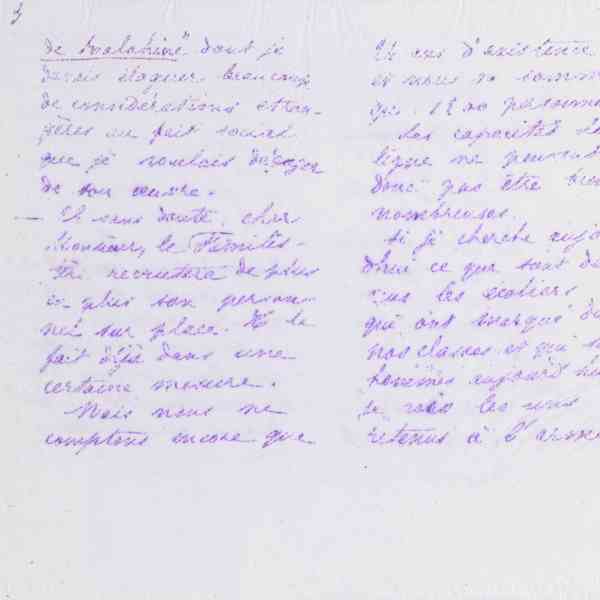 3
de Malahine" dont je
devais élaguer beaucoup
de considérations étran-
gères au fait social
que je voulais dégager
de son œuvre.
— Et sans doute, cher
Monsieur, le Familis-
tère recrutera de plus
en plus son person-
nel sur place. Il le
fait déjà dans une
certaine mesure.
Mais nous ne
comptons encore que
ans d'existence
et nous ne somm
que 1200 personne
Les capacités
ligne ne peuvent
donc pas être bien
nombreuses.
Si je cherche aujo
d'hui ce que sont de
nus les écoliers
qui ont marqué da
nos classes et qui s
hommes aujourd'hui
je vois les uns
retenus à l'armé